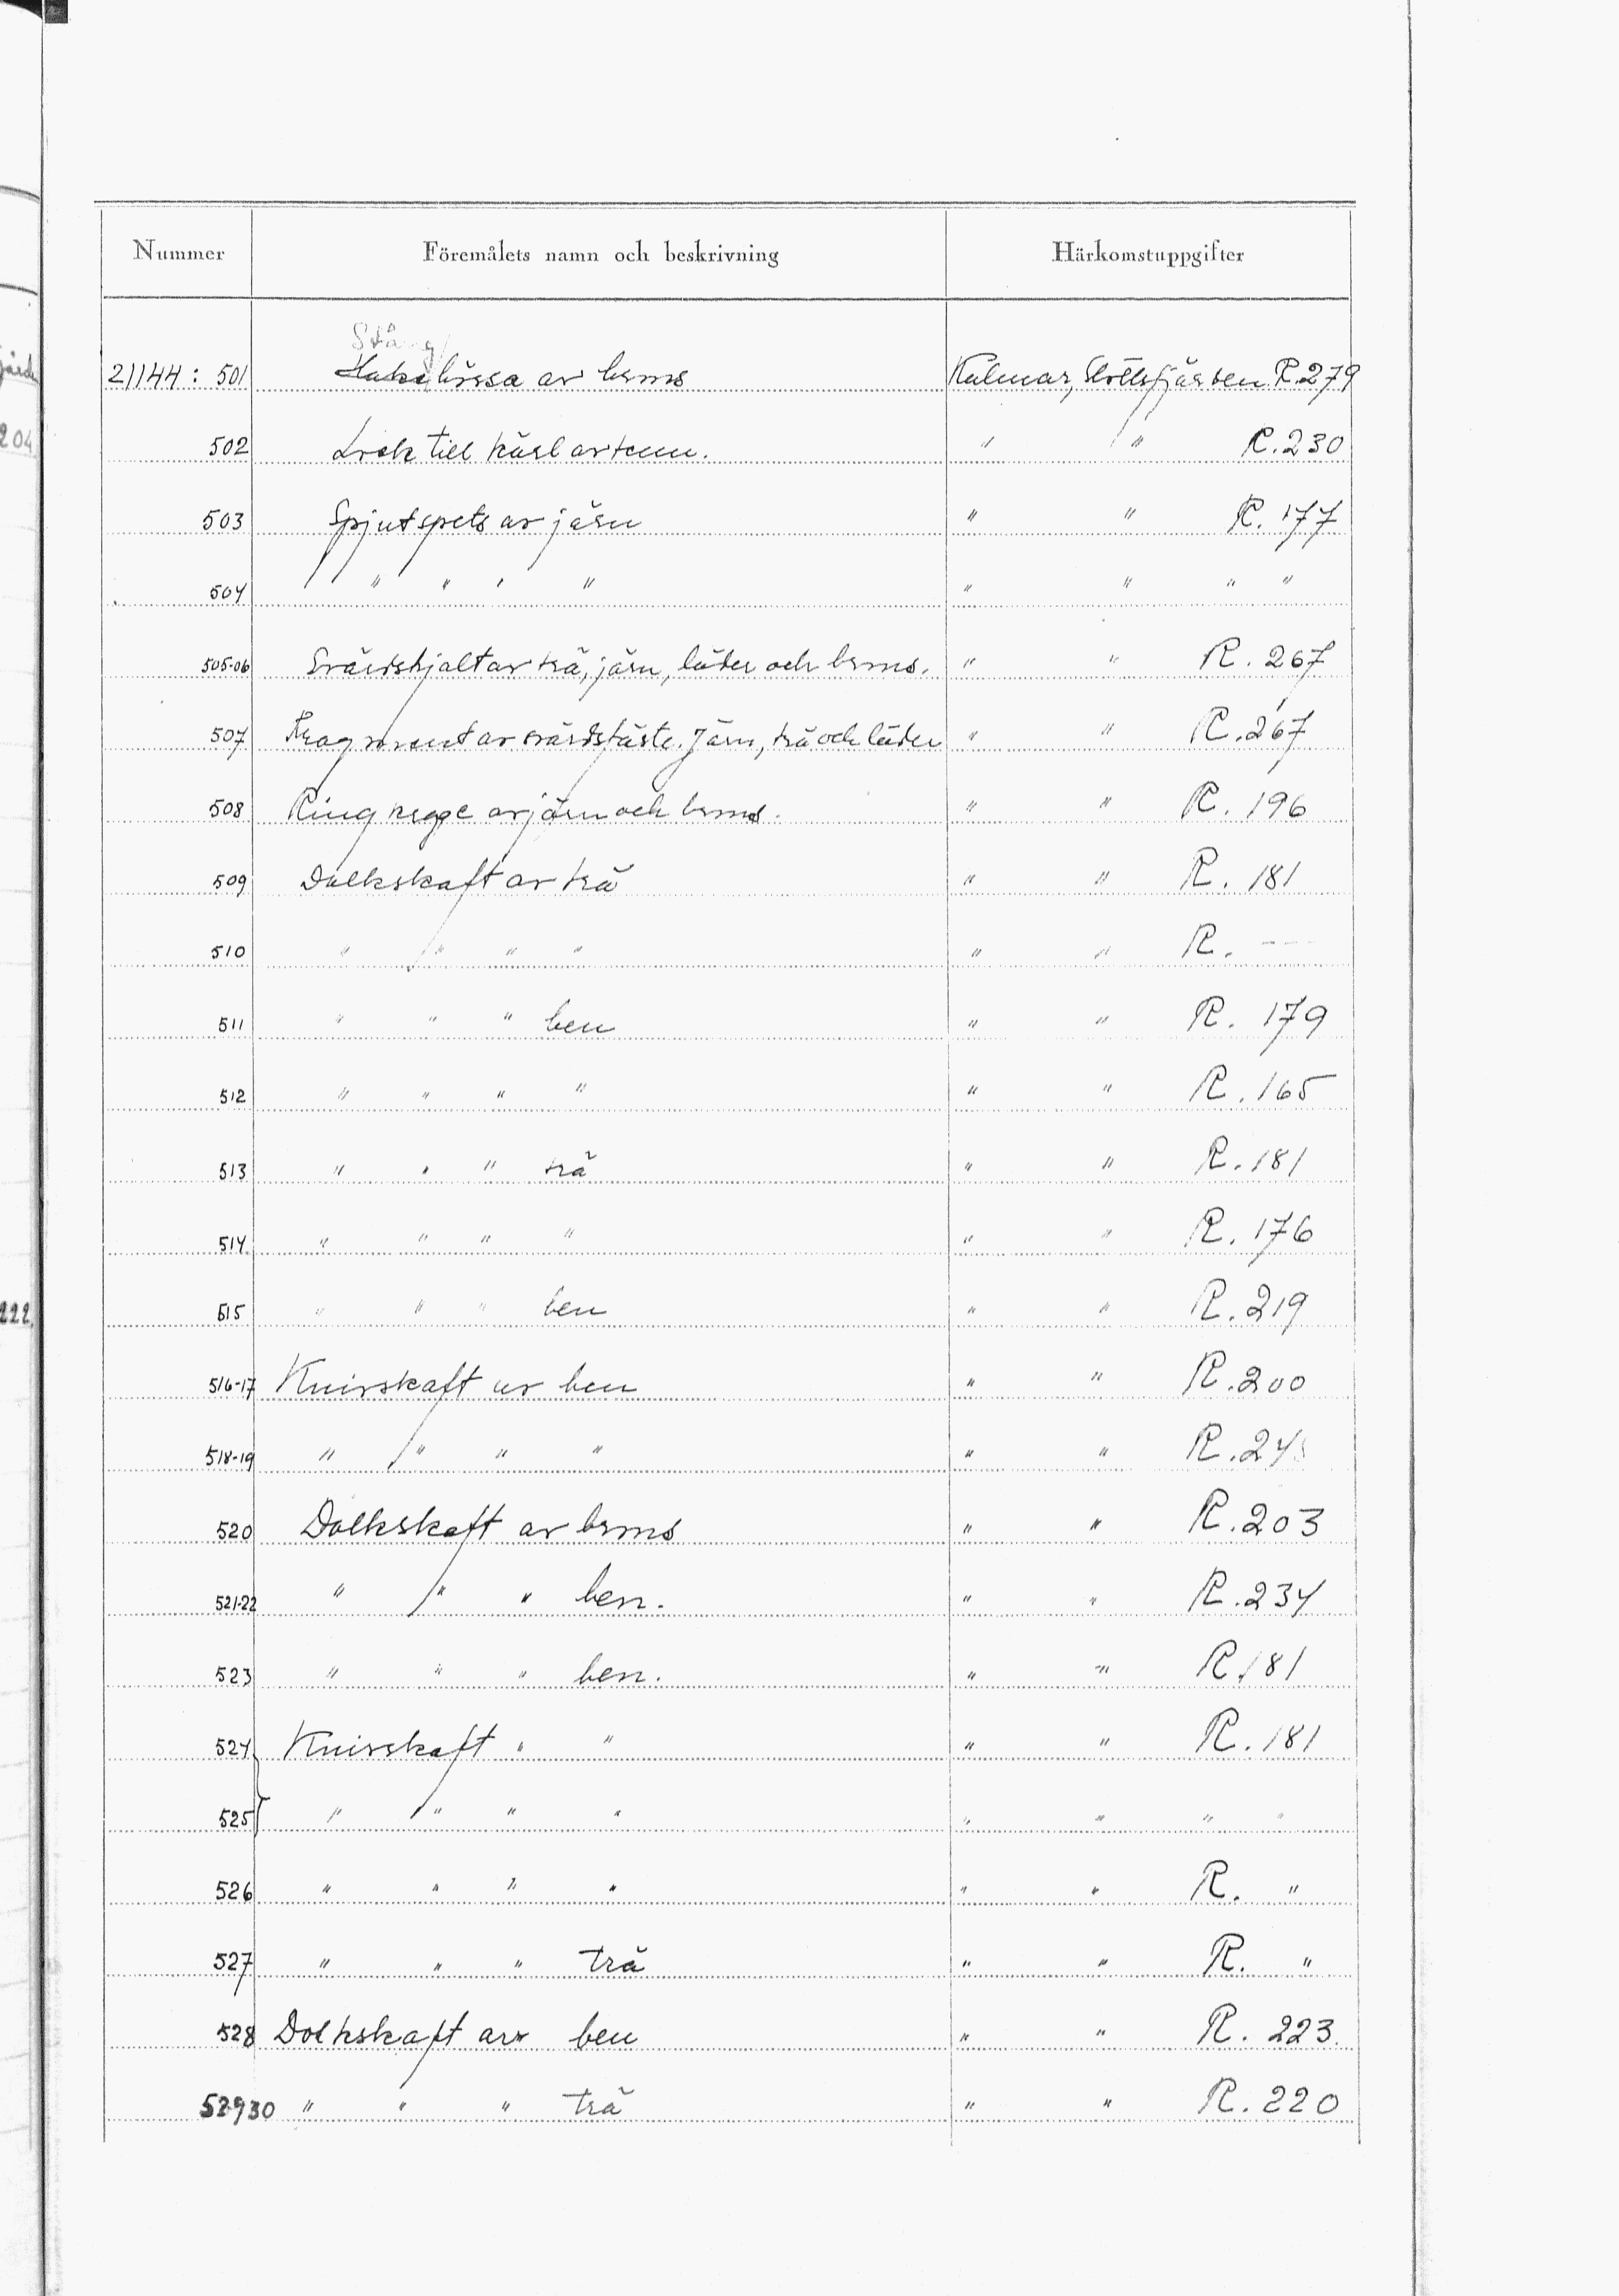 Nummer Föremålets namn och beskrivning Härkomstuppgifter
Stång
21144: 501 Hakebössa av brons Kalmar, Slottsfjärden R.279
502 Lock till kärl av tenn. " " R.230
503 Spjutspets av järn " " R. 177
504 " " " " " " " "
505-06 Svärdshjalt av trä, järn, läder och brons. " " R. 267
507 Fragment av svärdsfäste. Järn, trä och läder " " R.267
508 Ringkrage av järn och brons. " " R. 196
509 Dolkskaft av trä " " R. 181
510 " " " " " " R. ---
511 " " " ben " " R. 179
512 " " " " " " R. 165
513 " " " trä " " R. 181
514 " " " " " " R. 176
515 " " " ben " " R. 219
516-17 Knivskaft av ben " " R.200
518-19 " " " " " " R.24
520 Dolkskaft av brons " " R.203
521-22 " " " ben. " " R.234
523 " " " ben. " " R.181
524 Knivskaft " " " " R. 181
525 " " " " " " " "
526 " " " " " " R. "
527 " " " trä " " R. "
528 Dolkskaft av ben " " R. 223.
52930 " " " trä " " R. 220
204
222.